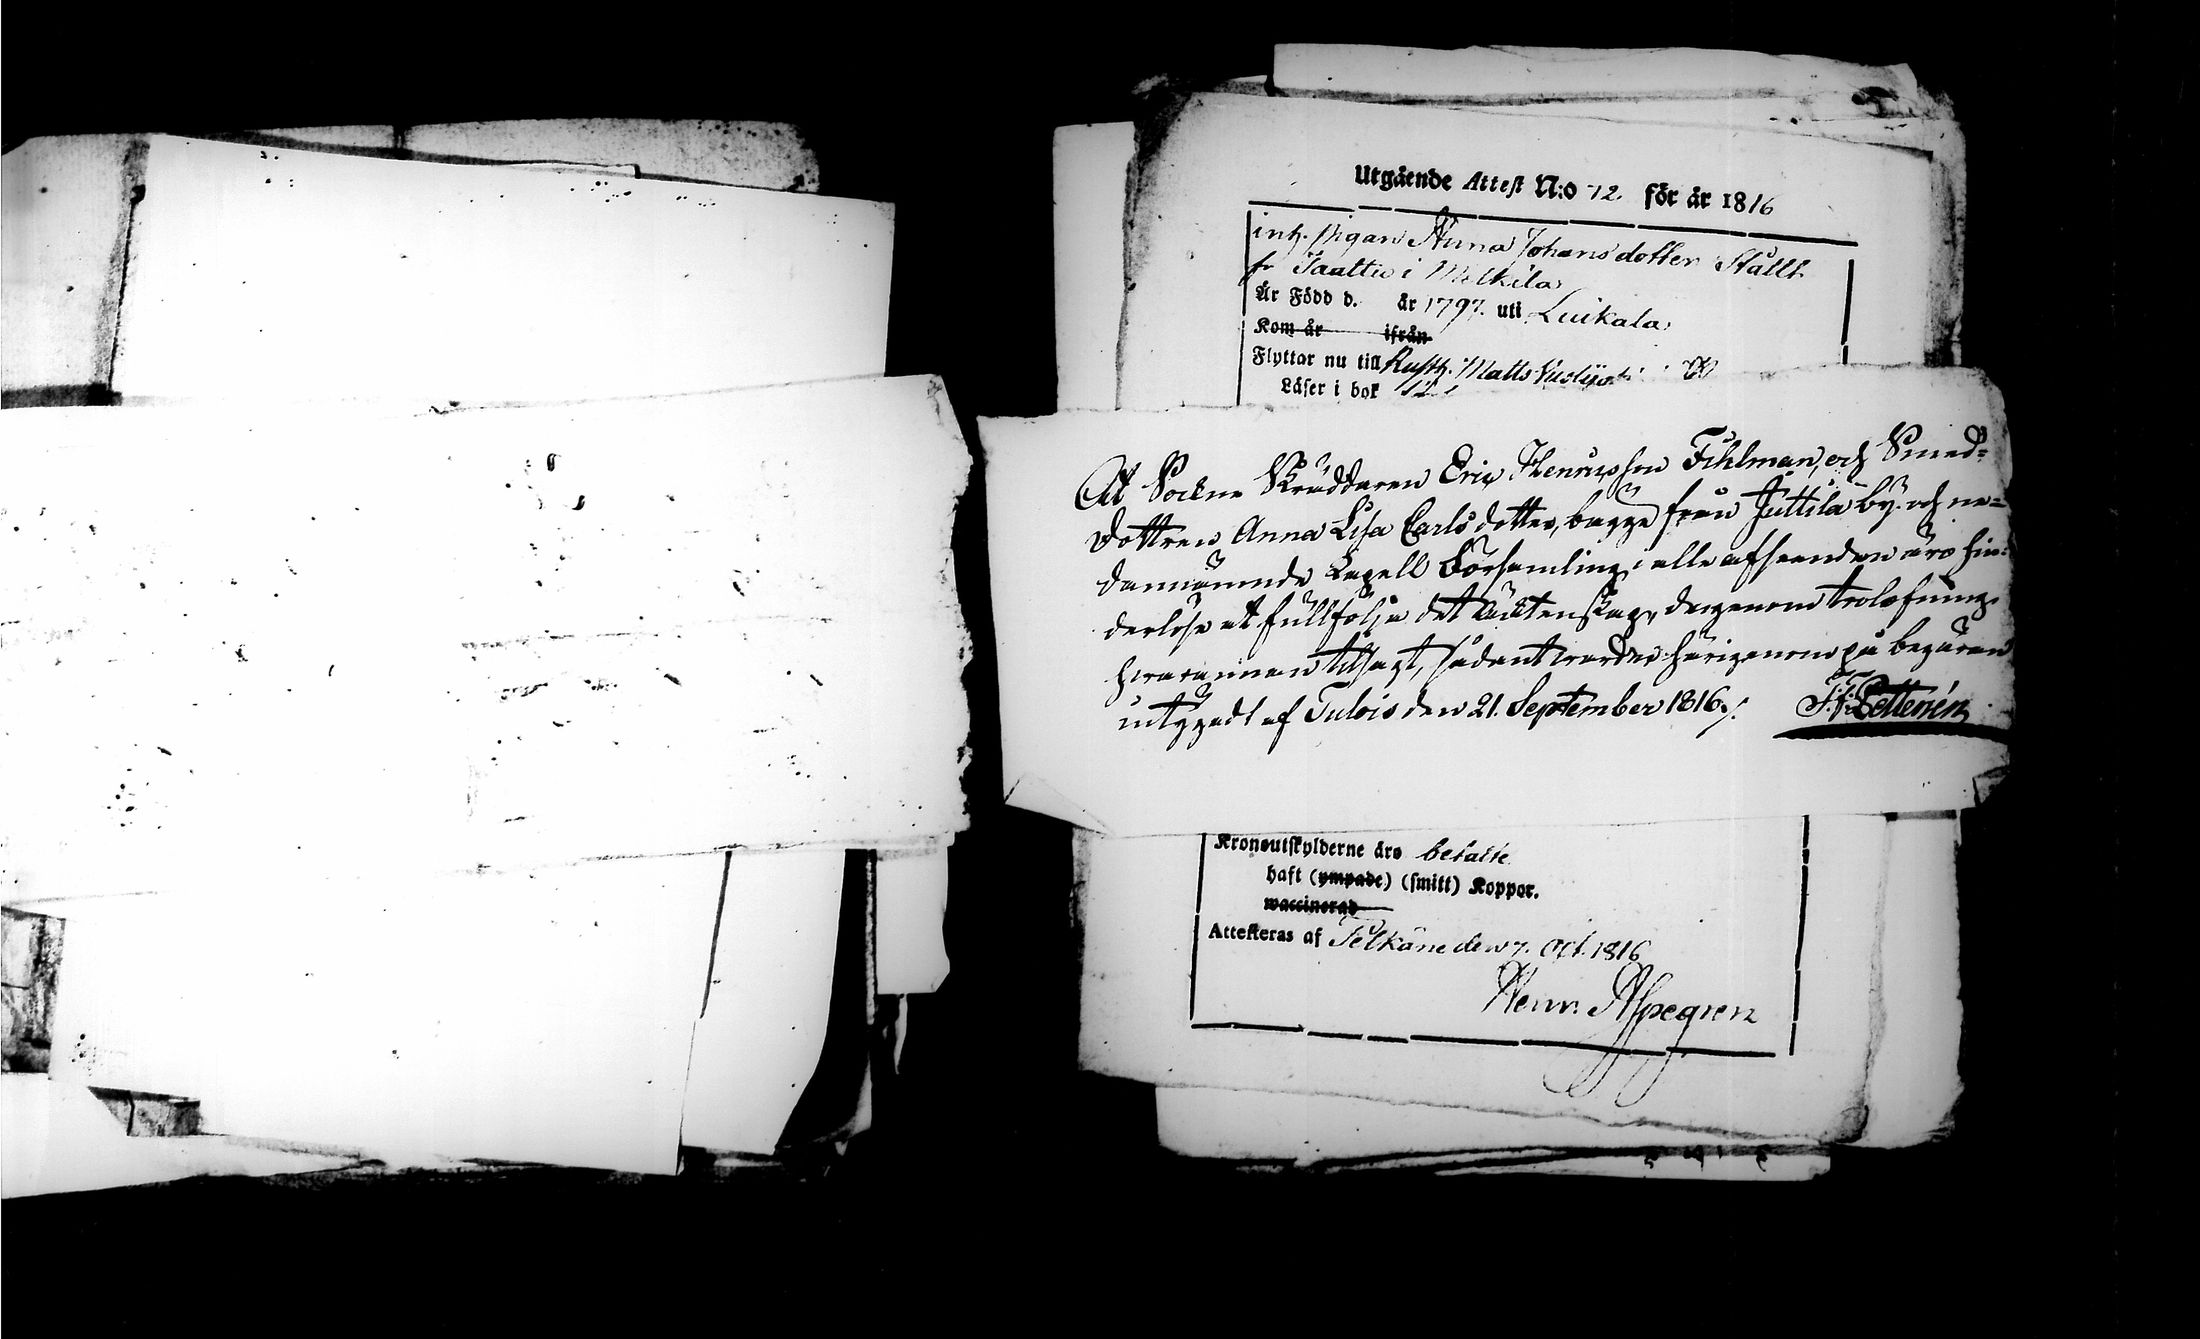 Utgående Attest N:o 12. för år 1816
inh. Pigan Anna Johansdotter Stållt
fr Taattu i Melkila
Är Född d. år 1797. uti Luikala
Kom år ifrån
Flyttar nu till Rusth. Matts
Läser i bok
At Sockne Skräddaren Eric Henricsson Fihlman, och Smed-
dottren Anna Lisa Carlsdotter, bägge från Juttila by och ne-
dannämnde Capell Församling, i alla afseenden äro hin-
derlöse at fullfölja det Äcktenskap, de genom trolofning
hvarannan tilsagt, sådant warder härigenom på begäran
intygadt af Tulois den 21. September 1816./.
Kronoutskylderne äro betalte
haft (ympade) (smitt) Koppor.
waccinerad
Attesteras af Pelkäne den 7. Oct. 1816
Henr. Aspegren